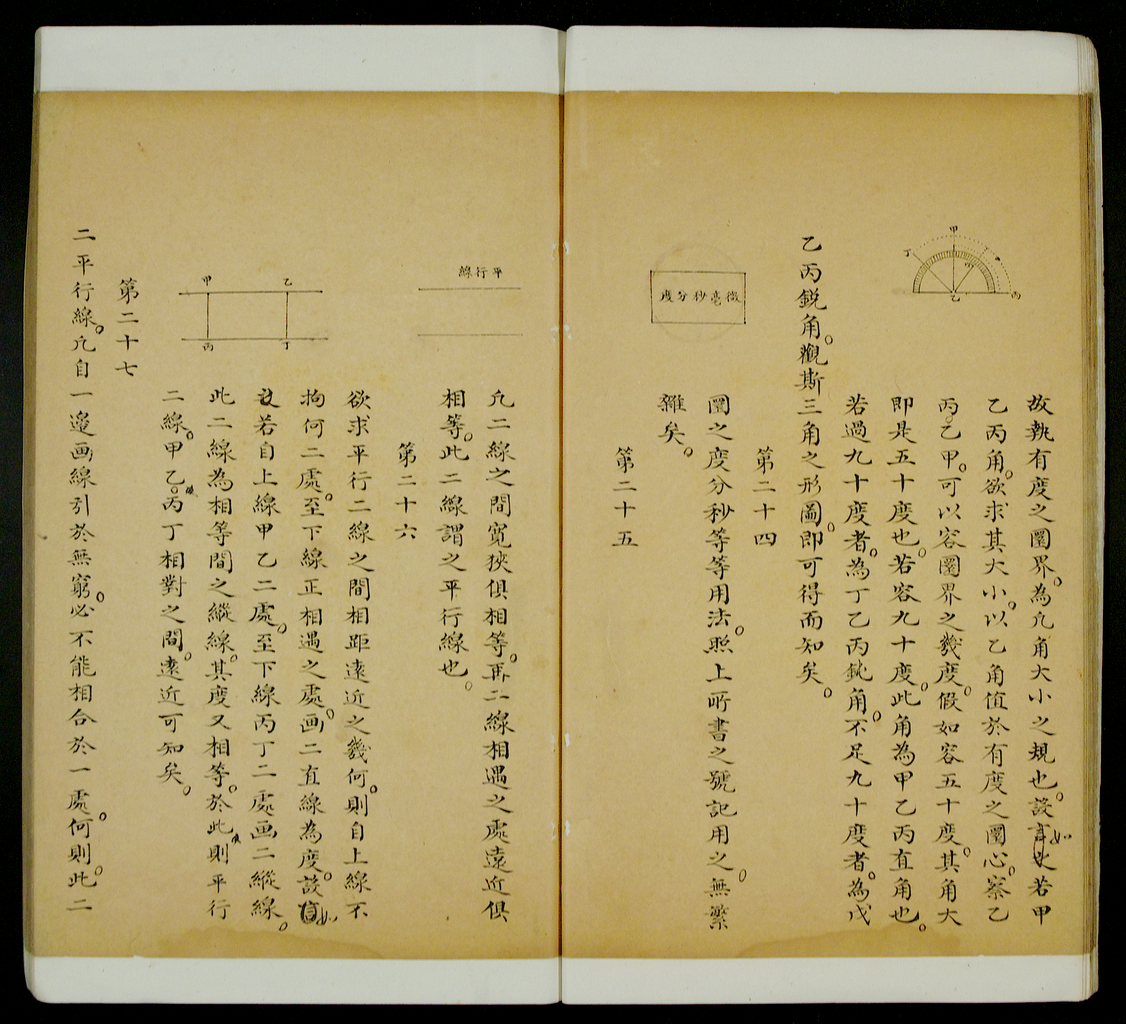 甲
丁
丙
乙
故執有度之圜界。為凢角大小之規也。設言如之若甲
乙丙角。欲求其大小。以乙角值於有度之圜心。察乙
丙。乙甲。可以容圜界之幾度。假如容五十度。其角大
即是五十度也。若容九十度。此角為甲乙丙直角也。
若過九十度者。為丁乙丙鈍角。不足九十度者。為戊
乙丙鋭角。觀斯三角之形圖。即可得而知矣。
第二十四
微毫秒分度
圜之度分秒等等用法。照上所書之號記用之。無繁
雜矣。
第二十五
平行線
凢二線之間寬狹俱相等。再二線相遇之處遠近俱
相等。此二線謂之平行線也。
第二十六
欲求平行二線之間相距遠近之幾何。則自上線不
拘何二處。至下線正相遇之處。画二直線為度。設如
若自上線甲乙二處。至下線丙丁二處画二縱線。
此二線為相等間之縱線。其度又相等。於此則平行
二線。甲乙。丙丁相對之間。遠近可知矣。
甲
乙
丙
丁
第二十七
二平行線。凢自一邉画線引於無窮。必不能相合於一處。何則。此二